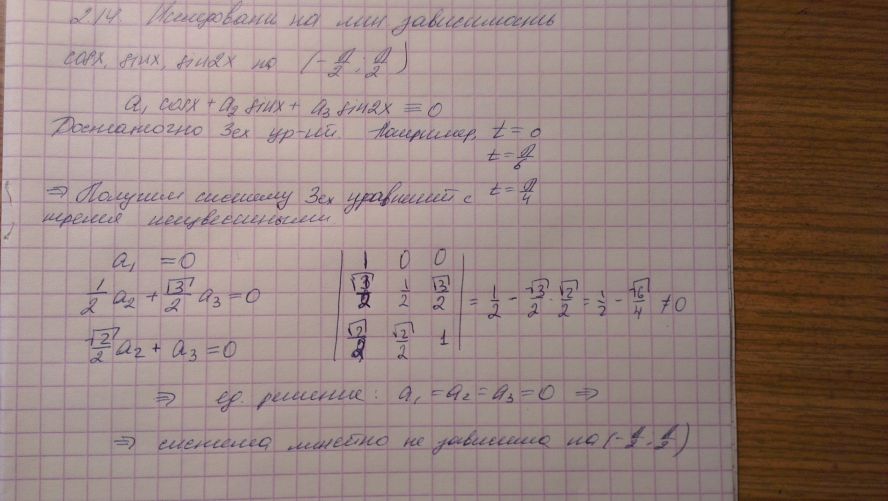 214. Исследовать на лин зависимость
cosx, sinx, sin2x на (-π/2; π/2)
a₁ cosx + a₂ sinx + a₃ sin2x ≡ 0
Достаточно 3ех ур-ий. Например, t = 0
t = π/6
t = π/4
⇒ Получим систему 3ех уравнений с
тремя неизвестными
a₁ = 0
1/2 a₂ + √3/2 a₃ = 0
√2/2 a₂ + a₃ = 0
| 1 0 0 |
| √3/2 1/2 √3/2 | = 1/2 - √3/2 · √2/2 = 1/2 - √6/4 ≠ 0
| √2/2 √2/2 1 |
⇒ ед. решение: a₁ = a₂ = a₃ = 0 ⇒
⇒ система линейно не зависима на (-π/2; π/2)